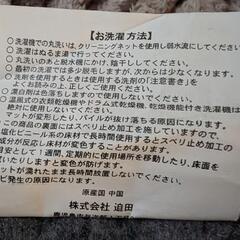 【お洗濯方法】
○ 洗濯機での丸洗いは、クリーニングネットを使用し弱水流にしてください。
○ 洗濯はぬるま湯で行ってください。
○ 丸洗いのあと脱水機にかけ、陰干ししてください。
○ 最初の洗濯では多少脱毛しますが、次からは少なくなります。
○ 洗剤を使用するときは使用する洗剤の「注意書き」を
よくお読みの上、正しくご使用ください。
○ 漂白剤が配合された洗剤は使用しないでください。
○ 温風式の衣類乾燥機やドラム式乾燥機、乾燥機能付き洗濯機は
マットが変形したり、パイルが抜ける原因になります。
商品の裏面にはスベリ止め加工を施していますので
塩化ビニール系の床材で長時間使用するとスベリ止め加工の
成分が反応し床材が変色することがあります。
目安として1週間、定期的に使用場所を移動したり、床面を
ていただきますと変色が防げます。
ットが濡れたまま長時間放置しないでください。
ビ発生の原因になります。
原産国 中国
株式会社 迫田